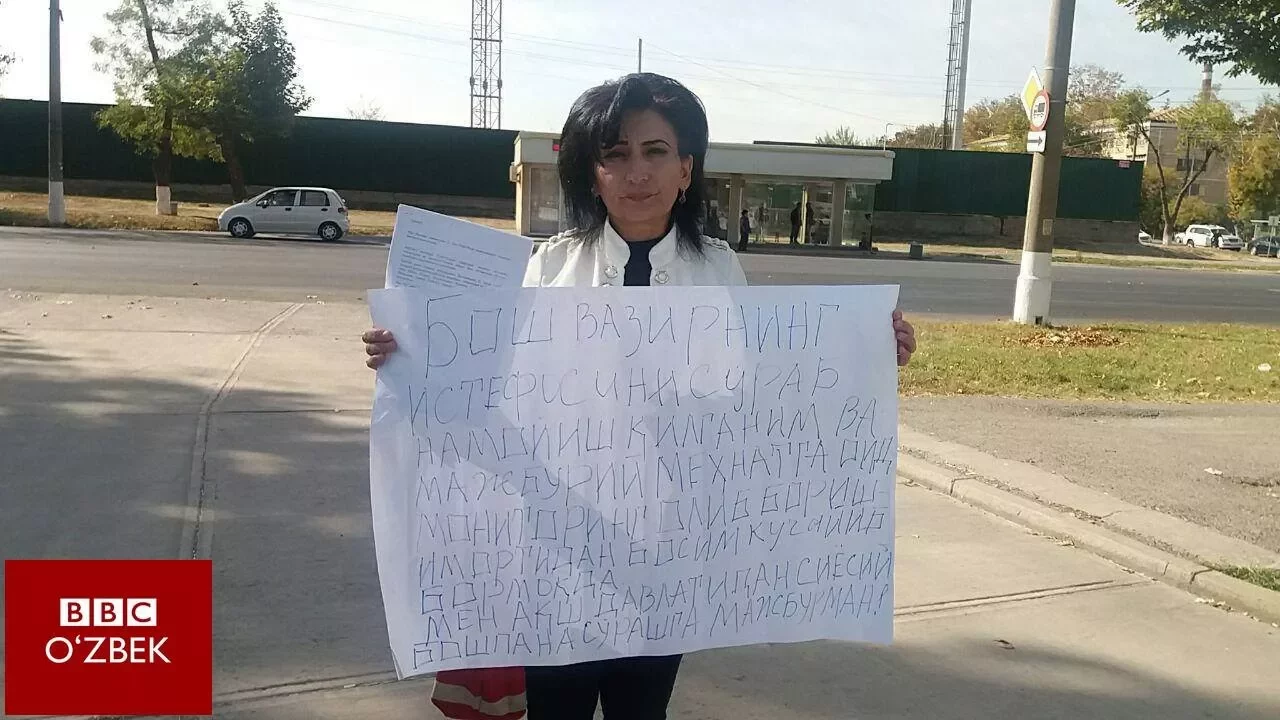 БОШ ВАЗИРНИНГ
ИСТЕФОСИНИ СУРАБ
НАМОЙИШ ҚИЛГАНИМ ВА
МАЖБУРИЙ МЕХНАТГА ОИД
МОНИТОРИНГ ОЛИБ БОРИШ-
ИМ ОРТИДАН БОСИМ КУЧАЙИБ
БОРМОКДА
МЕН АҚШ ДАВЛАТИДАН СИЁСИЙ
БОШПАНА СУРАШГА МАЖБУРМАН!
BBC
O'ZBEK